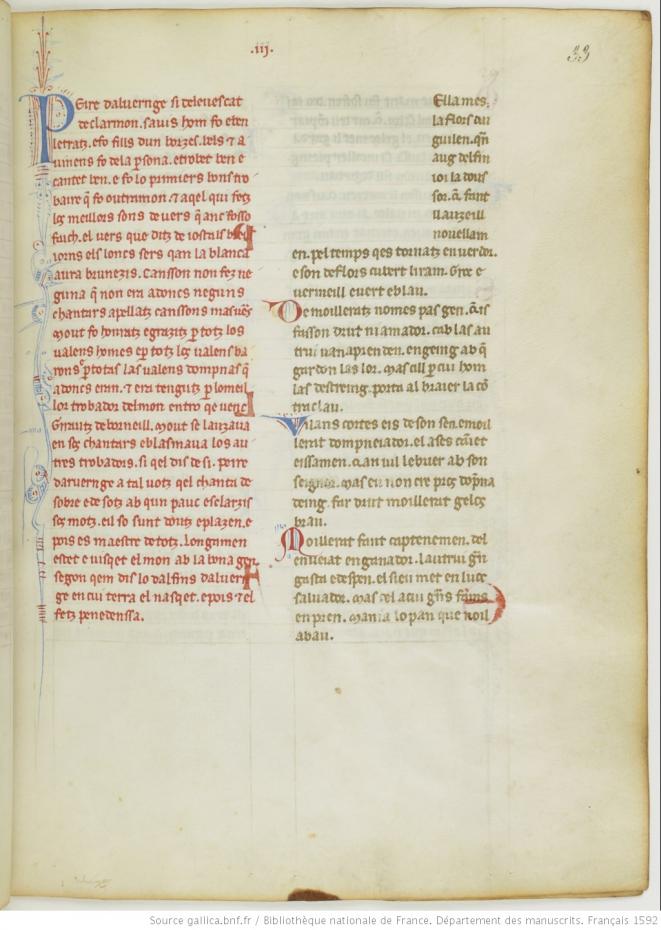 .iij.
33
PEire daluernge si fo leuescat
de clarmon. sauis hom fo e ben
letratz. e fo fills dun borzes. bels & a
uinens fo de la persona. e trobet ben e
cantet ben. e fo lo primiers bons tro
baire q̄ fo outramon. & aqel qui fetz
los meillors sons de uers q̄ anc fosso
faich. el uers que ditz de iostals breus
iorns els loncs sers qan la blanca
aura brunezis. Cansson non fez ne
guna q̄ non era adoncs neguns
chantars apellatz canssons mas uers
Mout fo honratz e grazitz p totz los
ualens homes e p totz los ualens ba
rons e p totas las ualens dompnas q̄
adoncs eran. & era tengutz p lo meil
lor trobador del mon entro qe uenc
Girautz de borneill. Mout se lauzaua
en sos chantars e blasmaua los au
tres trobadors. si qel dis de si. Peire
daluernge a tal uotz. qel chanta de
sobre e de sotz ab qun pauc esclatzis
sos motz. eil so sunt doutz e plazen. e
pois es maestre de totz. Longamen
estet e uisqet el mon ab la bona gen
segon qem dis lo dalfins daluer
ge en cui terra el nasqet. e pois & el
fetz penedenssa.
Ella mes.
la flors au
guilen. qn
aug del fin
ioi la dous
sor. q̄ fant
ll auzeill
nouellam
en. pel temps qes tornatz en uerdor.
e son de flors cubert li ram. Groc e
uermeill e uert e blau.
De moilleratz nomes pas gen. q̄is
fasson drut ni amador. cab las au
trui uan aprenden. engeing ab q̄
gardon las lor. mas cill p cui hom
las destreing. porta al braier la cō
traclau.
Vilans cortes eis de son sen. e moil
lerat dompneiador. el ases cōtet
eissamen. qan uil lebrer ab son
seignor. mas eu non cre pros dōpna
deing. far drut moillerat gelos
brau.
Moillerat fant captenemen. del
enueiat enganador. lautrui gn̄
gasta e despen. el sieu met en luoc
saluador. mas cel a cui gns fams
en pren. mania lo pan que noil
abau.
Source gallica.bnf.fr / Bibliothèque nationale de France. Département des manuscrits. Français 1592